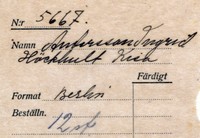 N:r 5667.
Namn Andersson Ingrid
Höckhult Kisa
Färdigt
Format Berlin
Beställn. 12 st